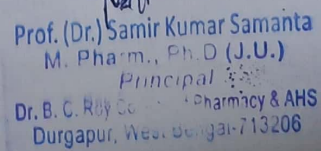 Prof. (Dr.) Samir Kumar Samanta
M. Pharm., Ph.D (J.U.)
Principal
Dr. B. C. Roy Pharmacy & AHS
Durgapur, West Bengal-713206